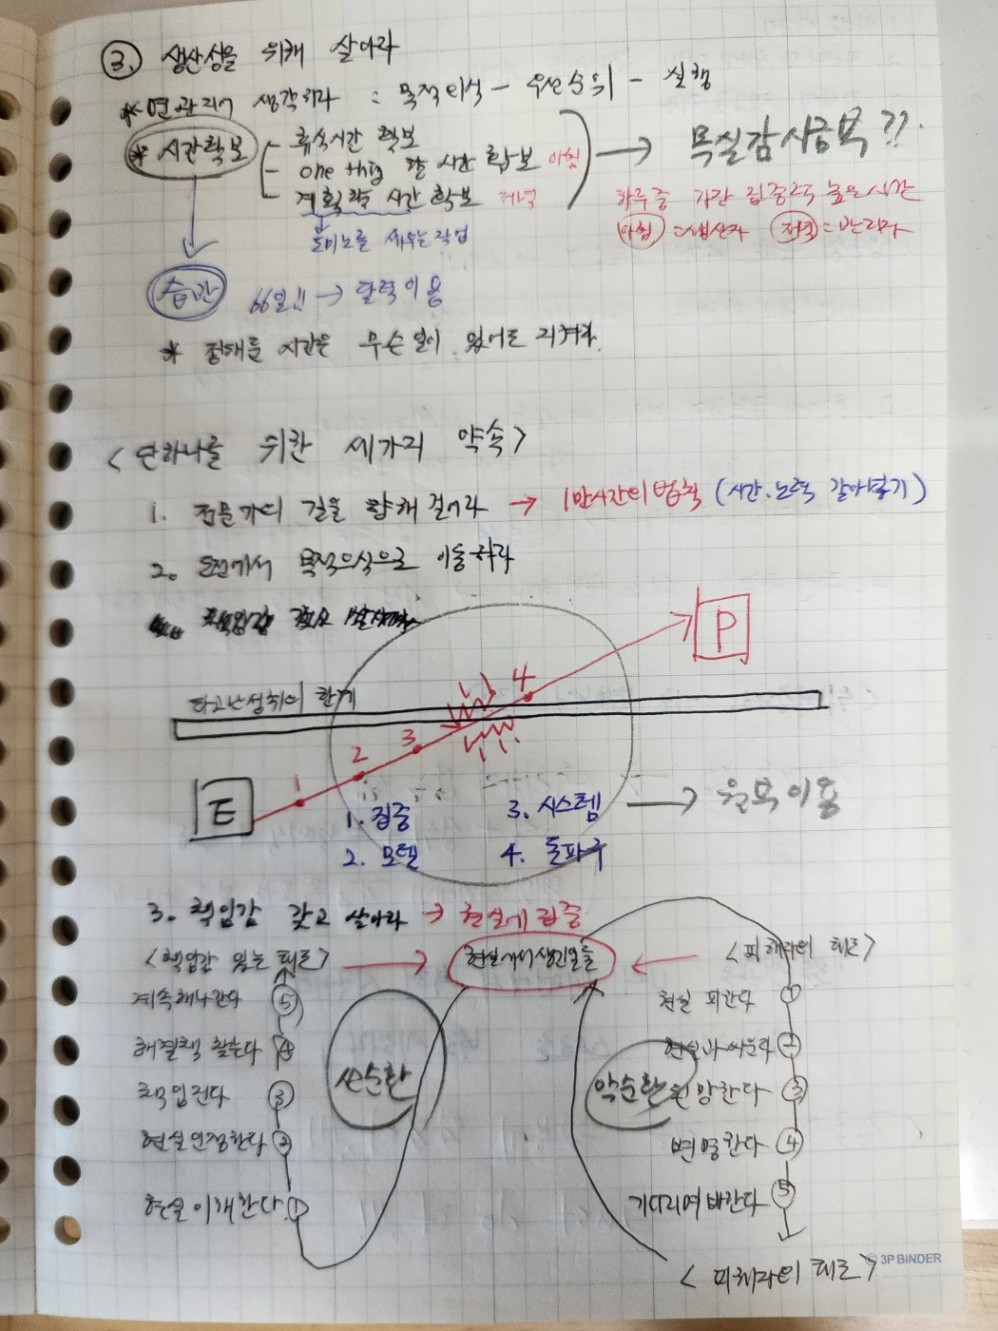 ③. 생산성을 위해 살아라
* 연관지어 생각하라 : 목적의식 - 우선순위 - 실행
* 시간확보
- 휴식시간 확보
- one thig 할 시간 확보 아침
- 계획할 시간 확보 저녁
→ 목실감시금부 ??
도미노를 세우는 작업
하루 중 가장 집중력 높은 시간
아침 = 생산자 저녁 = 관리자
습관 66일!! → 달력이용
* 정해둔 시간은 무슨일이 있어도 지켜라.
<단하나를 위한 세가지 약속>
1. 전문가의 길을 향해 걸어라 → 1만시간의 법칙 (시간.노력 갈아넣기)
2. 목적의식으로 이동하라
P
타고난 성취의 한계
1 2 3 4
E
1. 집중 3. 시스템 → 원부이용
2. 모델 4. 돌파구
3. 책임감 갖고 살아라 → 현실에 집중
<책임감 있는 태도> → 현실에서 생긴일들 ← <피해자의 태도>
계속해나간다 ⑤
해결책 찾는다 ④
책임진다 ③
현실 인정한다 ②
현실 이해한다 ①
선순환
악순환
현실 피한다 ①
현실과 싸운다 ②
원망한다 ③
변명한다 ④
기다리며 바란다 ⑤
<피해자의 태도>
3P BINDER